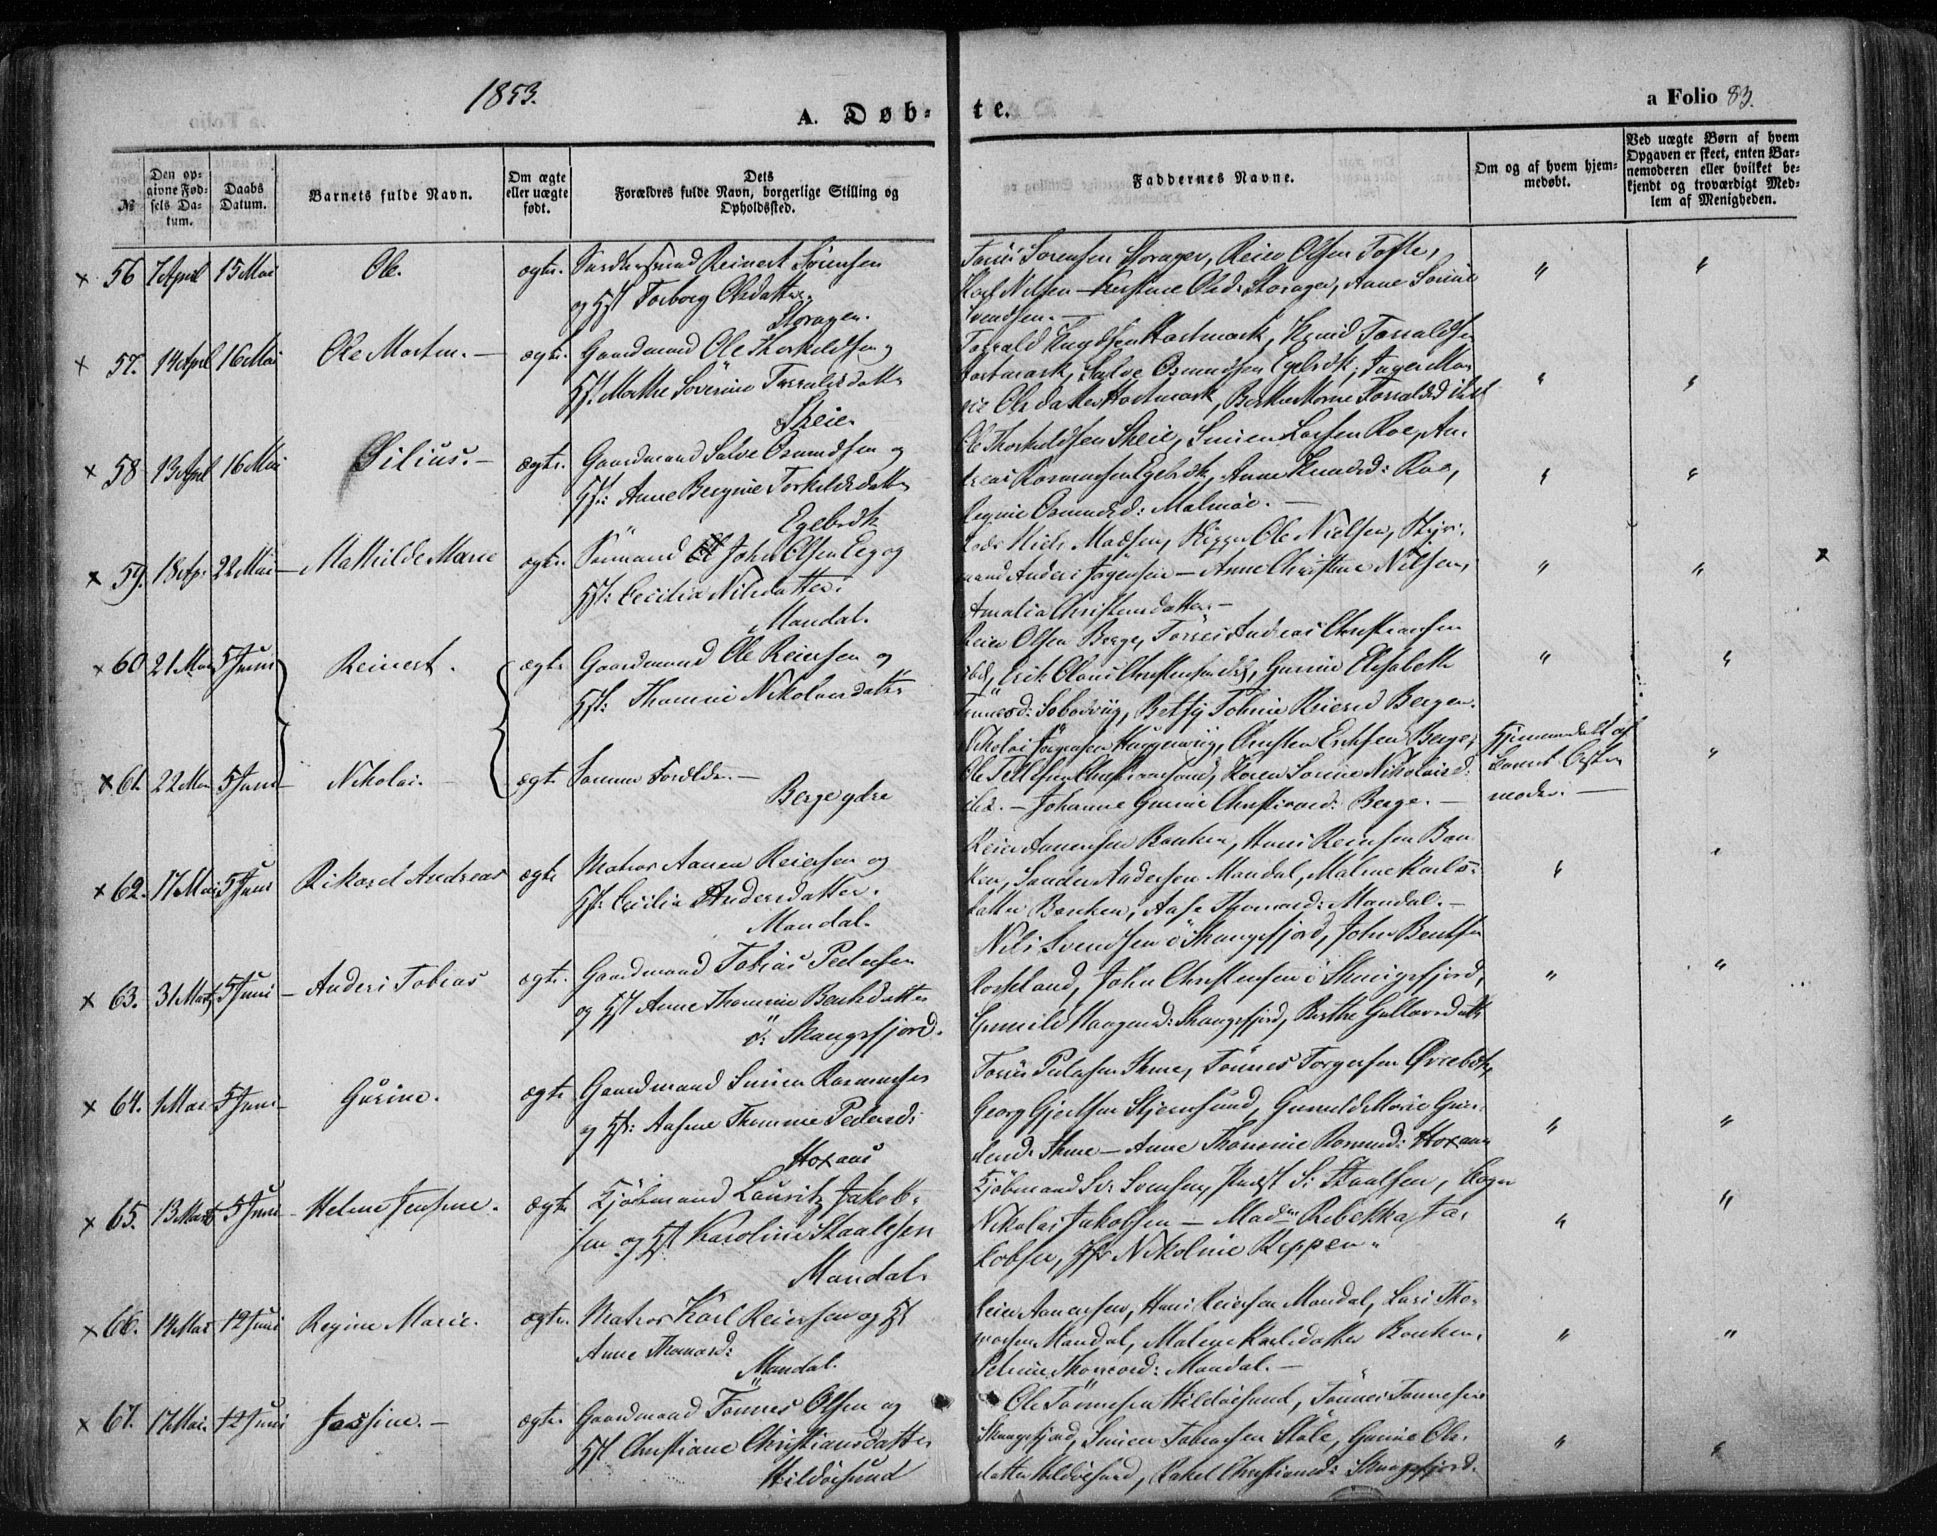 1853.
A. Døb-
te.
a Folio 83.
№
Den op-
givne Fød-
sels Da-
tum.
Daabs
Datum.
Barnets fulde Navn.
Om ægte
eller uægte
født.
Dets
Forældres fulde Navn, borgerlige Stilling og
Opholdssted.
Faddernes Navne.
Om og af hvem hjem-
medøbt.
Ved uægte Børn af hvem
Opgaven er skeet, enten Bar-
nemoderen eller hvilket be-
kjendt og troværdigt Med-
lem af Menigheden.
x 56 7 April 15 Mai Ole. ægte. Reinert Sörensen
og Hst Torborg Olsdatter.
Storagen.
Sörensen Storagen, Reier Olsen Tofte,
Nilsen - Olsd: Storagen, Anne Sörine
Svendsen. -
x 57. 14 April 16 Mai Ole Morten. - ægte. Gaardmand Ole Thorkildsen og
Hst: Marthe Severine Torvalds datter
Skeie.
Torvald Knudsen Hortmark, Knud Torvaldsen
Hortmark, Salve Osmundsen Egebrek, Inger Ma-
rie Olsdatter Hortmark, Berthe Marie Torvaldsd ibid
x 58 13 April 16 Mai Silius. - ægte. Gaardmand Salve Osmundsen og
Hst: Anne Bergine Torkildsdatter
Egebrek
Ole Thorkildsen Skeie, Simen Larsen Roe, An-
dreas Rasmussen Egebrek, Anne Knudsd: Roe,
Regine Osmundsd: Malmöe. -
x 59. 18 Ap. 22 Mai - Mathilde Marie ægte. Sömand John Olsen Eeg og
Hst: Cecilia Nilsdatter.
Mandal.
Lods Niels Madsen, Rigger Ole Nielsen, Styr-
mand Anders Jörgensen - Anne Christine Nilsen,
Amalia Christensdatter. -
x 60 21 Mai 5 Juni Reinert. ægte Gaardmand Ole Reiersen og
Hst: Thomine Nikolaisdatter
Reier Olsen Berge, Andreas Christiansen
ibid, Erik Olaus Christensen ibid, Gunine Elisabeth
Betsy Tobine Reiersd Bergen.
x 61. 22 Mai 5 Juni - Nikolai. - ægte Samme Forældre. -
Berge ydre
Nikolai Jörgensen Christen Eriksen Berge,
Ole Christiansand, Karen Sörine Nikolaisd:
ibid. - Johanne Gunine Christiansd: Berge. -
Hjemmedöbt af
Barnet
moder. -
x 62. 17 Mai 5 Juni Rikard Andreas ægte Matros Aanen Reiersen og
Hst: Cecilia Andersdatter.
Mandal.
Reier Aanensen Banken, Hans Reiersen Ban-
ken, Sander Andersen Mandal, Malene Karls-
datter Banken, Aase Thomasd: Mandal. -
x 63. 31 Marts 5 Juni - Anders Tobias ægte. Gaardmand Tobias Pedersen
og Hst Anne Thomine Bentsdatter
ö: Skaugsfjord.
Nils Svendsen ö Skaugsfjord, John Bentsen
John Christensen ö Skaugsfjord,
Gunild Haagensd: Skaugsfjord, Berthe Gullovsdatter
x 64. 1 Mai 5 Juni - Gurine. ægte Gaardmand Simen Rasmussen
og Hst: Aasene Thomine Pedersd:
Hoxaas
Pedersen Skne, Tönnes Torgersen Övrebek,
Georg Gjertsen Stjernsund, Gunild Marie
- Anne Thomine Rasmusd: Hoxaas
x 65. 13 Marts 5 Juni - Helene Jensine. ægte Kjöbmand Lauritz Jakob-
sen og Hst Karoline Staalesen
Mandal
Kjöbmand Sv. Svensen, S. Staalsen,
Nikolai Jakobsen - Madm Rebekka Ja-
kobsen, Jfr Nikoline Reppen.
x 66. 14 Mai 12 Juni Regine Marie. ægte. Matros Karl Reiersen og Hst
Anne Thomasd:
Mandal.
Reier Aanensen, Hans Reiersen Mandal, Lars Tho-
massen Mandal, Malene Karlsdatter Banken.
Petrine Thomasd: Mandal. -
x 67. 17 Mai. 12 Juni Jossine. - ægte. Gaardmand Tönnes Olsen og
Hst Christiane Christiansdatter
Hildöesund
Ole Tönnesen Hildöesund, Tönnes Tönnesen
Skaugsfjord, Simen Tobiassen Ståle, Gunine Ols-
datter Hildöesund, Rakel Christiansd: Skaugsfjord.